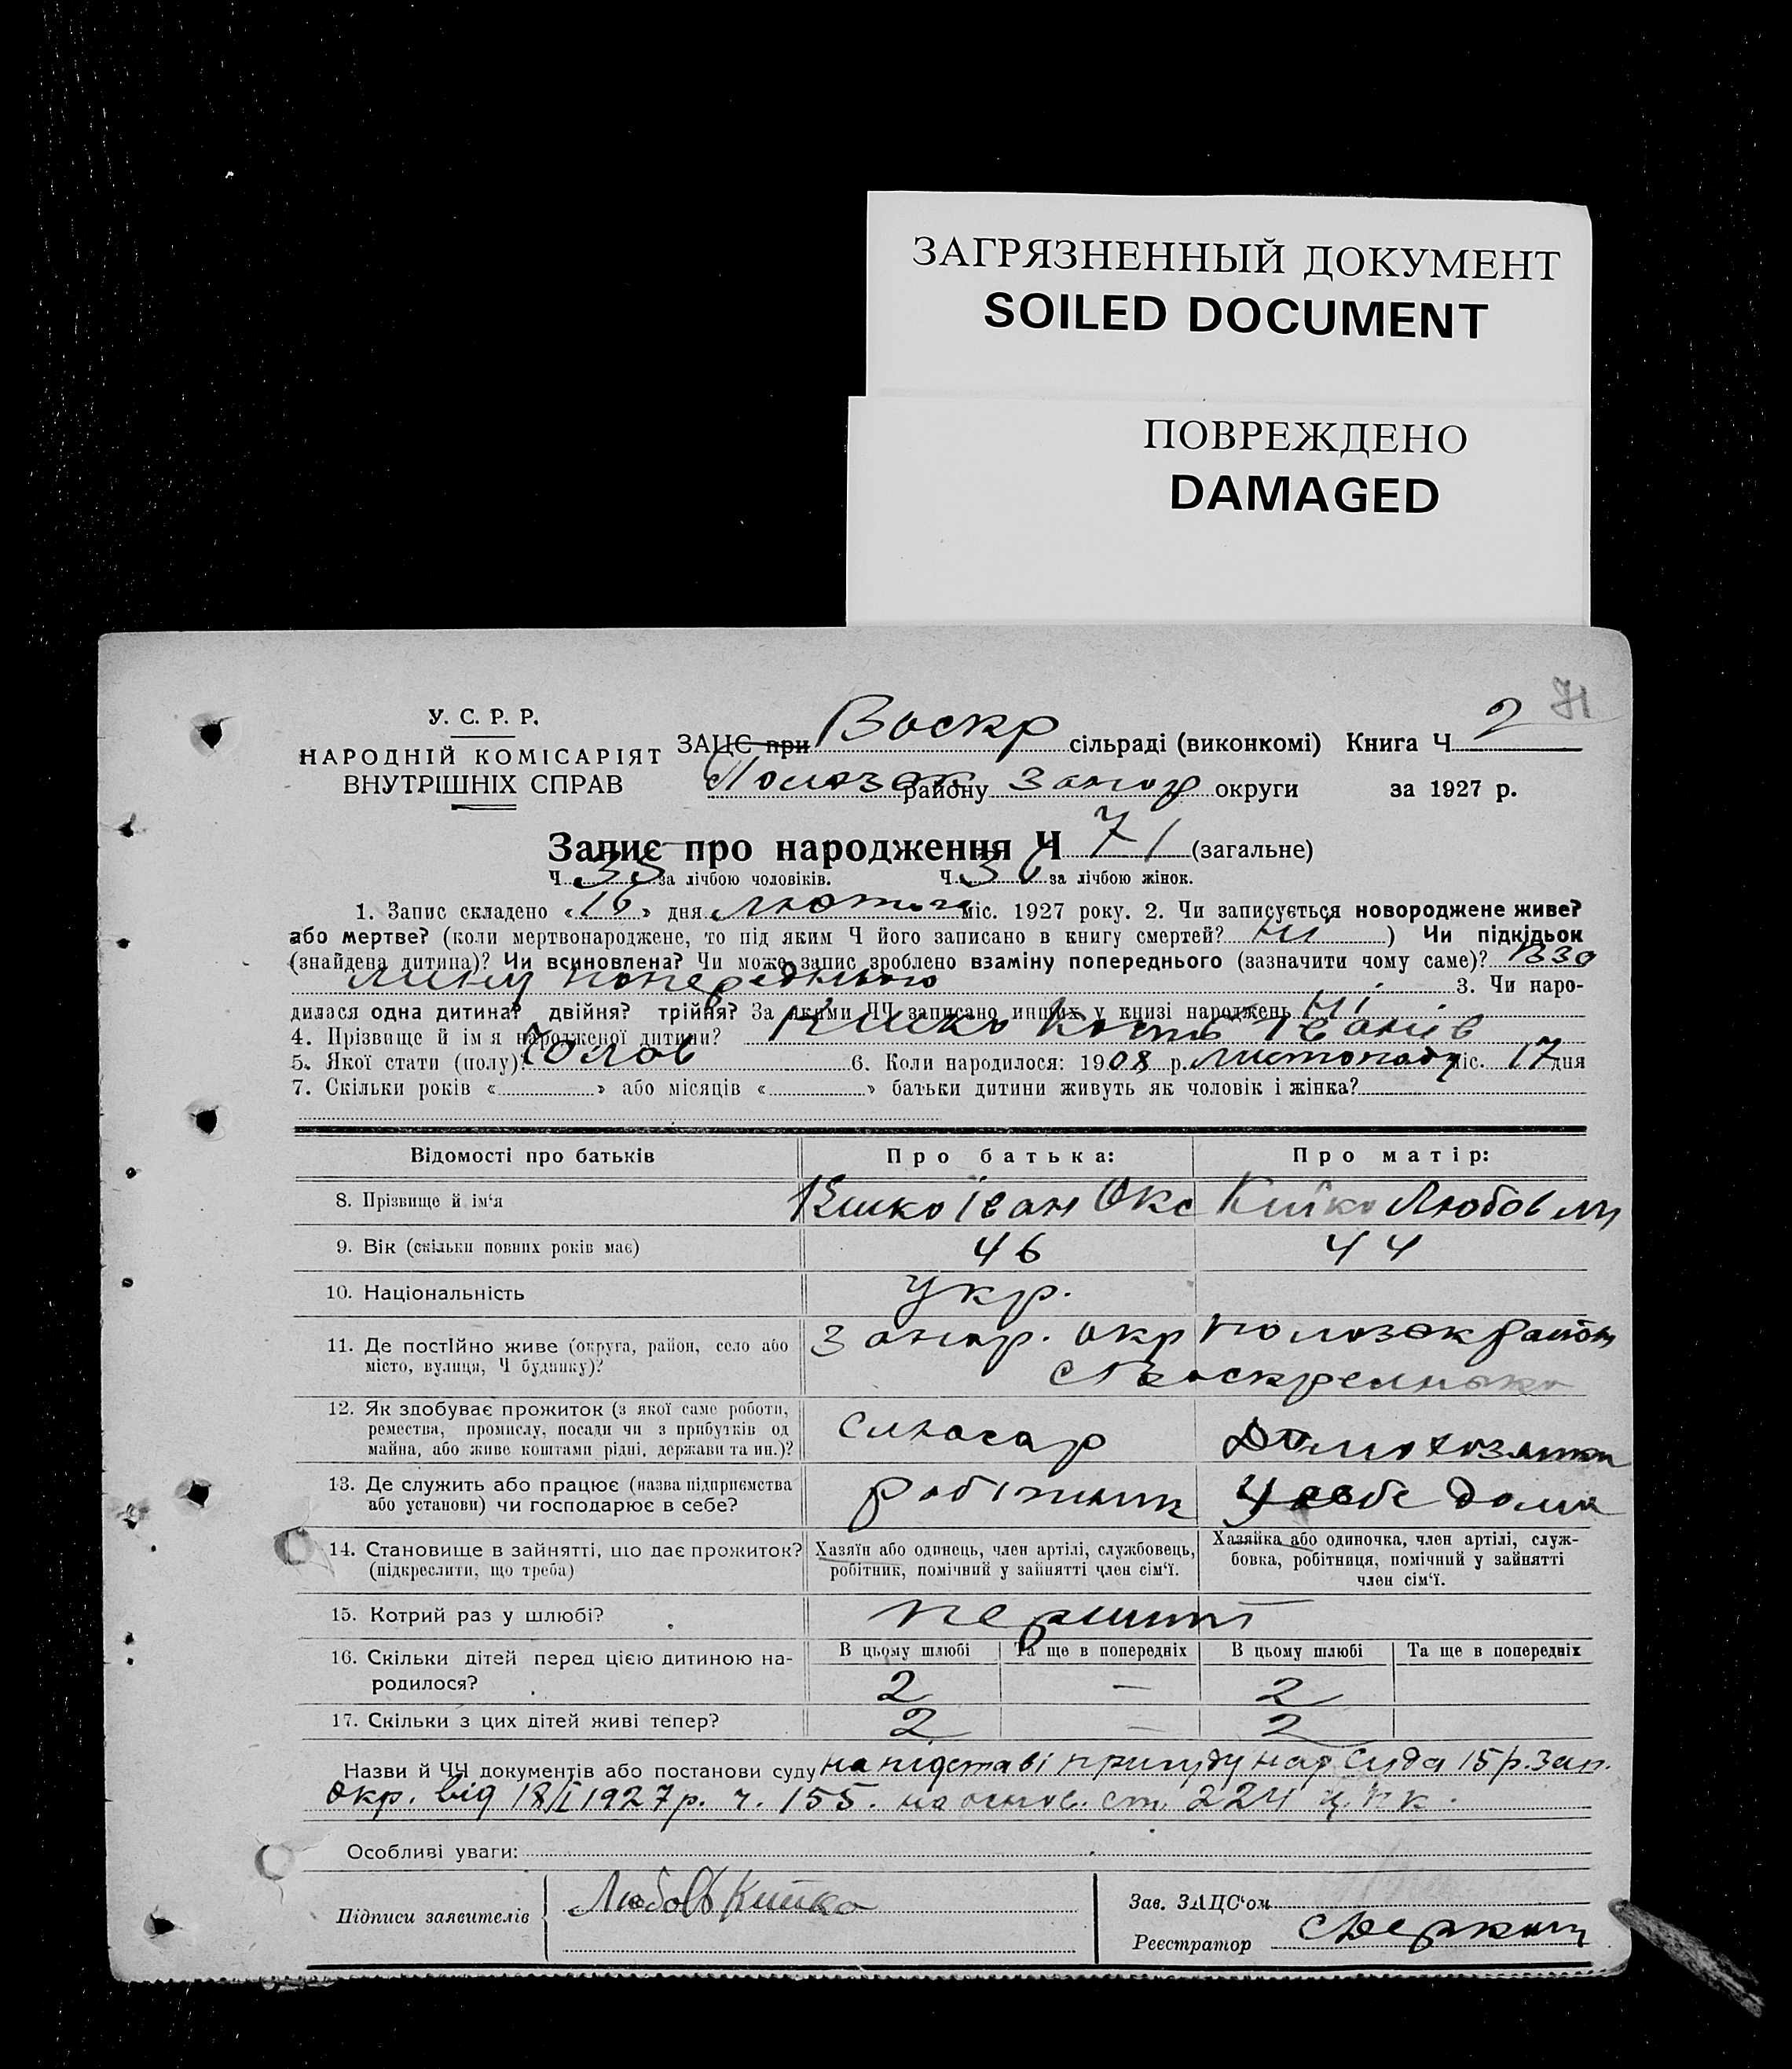 ЗАГРЯЗНЕННЫЙ ДОКУМЕНТ
SOILED DOCUMENT
ПОВРЕЖДЕНО
DAMAGED
71
У. С. Р. Р.
НАРОДНІЙ КОМІСАРІЯТ
ВНУТРІШНІХ СПРАВ
ЗАЦС при Воскр сільраді (виконкомі) Книга Ч 2
району Запор округи за 1927 р.
Запис про народження Ч 71 (загальне)
Ч 35 за лічбою чоловіків. Ч 36 за лічбою жінок.
1. Запис складено «16» дня лютого міс. 1927 року. 2. Чи записується новороджене живе?
або мертве? (коли мертвонароджене, то під яким Ч його записано в книгу смертей? Ні ) Чи підкідьок
(знайдена дитина)? Чи всиновлена? Чи може запис зроблено взаміну попереднього (зазначити чому саме)? Взa
міну попереднього 3. Чи наро-
дилася одна дитина? двійня? трійня? За якими ЧЧ записано инших у книзі народжень Ні
4. Прізвище й ім'я народженої дитини? Кишко Кость Іванів
5. Якої стати (полу)? Чолов 6. Коли народилося: 1908 р. листопаду міс. 17 дня
7. Скільки років « » або місяців « » батьки дитини живуть як чоловік і жінка?
Відомості про батьків Про батька: Про матір:
8. Прізвище й ім'я Кишко Іван Окс Кишко Любов Ми
9. Вік (скільки повних років має) 46 44
10. Національність Укр.
11. Де постійно живе (округа, район, село або місто, вулиця, Ч будинку)? Запор. окр Полозек район
с Воскресенька
12. Як здобуває прожиток (з якої саме роботи,
ремества, промислу, посади чи з прибутків од
майна, або живе коштами рідні, держави та ин.)? слюсар Домохозяйка
13. Де служить або працює (назва підприємства
або установи) чи господарює в себе? робітник У себе дома
14. Становище в зайнятті, що дає прожиток?
(підкреслити, що треба)
Хазяїн або одинець, член артілі, службовець,
робітник, помічний у зайнятті член сім'ї.
Хазяйка або одиночка, член артілі, служ-
бовка, робітниця, помічний у зайнятті
член сім'ї.
15. Котрий раз у шлюбі? перший
16. Скільки дітей перед цією дитиною на-
родилося?
В цьому шлюбі Та ще в попередніх В цьому шлюбі Та ще в попередніх
2 — 2
17. Скільки з цих дітей живі тепер? 2 — 2
Назви й ЧЧ документів або постанови суду на підставі присуду нар Суда 15 р. Зап.
окр. від 18/I 1927 р. ч. 155. на основ. ст. 224 ц.п.к.
Особливі уваги:
Підписи заявителів Любовь Кишко
Зав. ЗАЦС'ом
Реєстратор